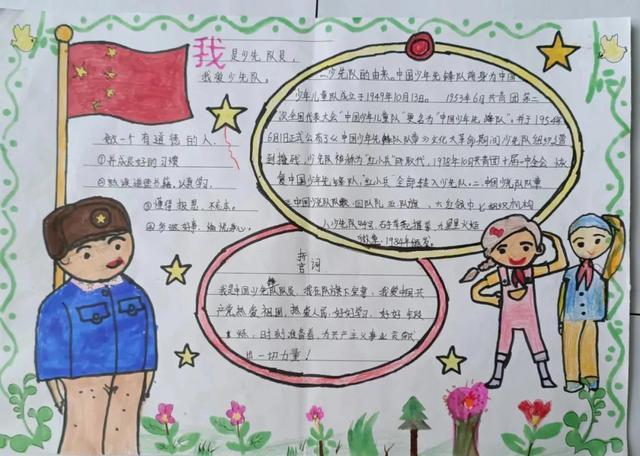 我是少先队员
我爱少先队。
做一个有道德的人
①养成良好的习惯
②熟读道德书籍,认真学习.
③懂得报恩,不忘本。
④多做好事,愉悦身心。
一.少先队的由来.中国少年先锋队前身为中国
少年儿童队成立于1949年10月13日。1953年6月共青团第二
次全国代表大会"中国少年儿童队"更名为"中国少年先锋队",并于1954年
6月1日正式公布了《中国少年先锋队队章》文化大革命期间少先队组织遭
到撤残,少先队称谓为"红小兵"所取代,1978年10月共青团十届一中全会
复中国少年先锋队,"红小兵"全部转入少先队。二.少先队队章
三.中国少先队队徽、四队礼,五队旗、六红领巾七组织机构
八少先队呼号
1984年颁发。
誓词
我是中国少先队队员,我在队旗下宣誓:我爱中国共
产党,热爱祖国,热爱人民,好好学习,好好
炼,时刻准备着,为共产主义事业贡献
出一切力量!